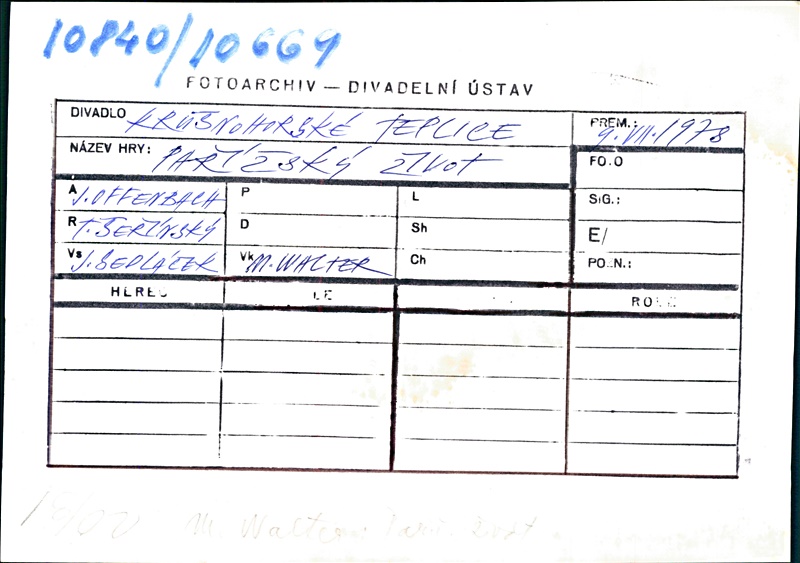 10840/10669
FOTOARCHIV — DIVADELNÍ ÚSTAV
DIVADLO KRUŠNOHORSKÉ TEPLICE PREM.: 9. VII. 1978
NÁZEV HRY: PAŘÍŽSKÝ ŽIVOT FO.O
A J. OFFENBACH P L SIG.:
R T. ŠEŘÍNSKÝ D Sh E/
Vs J. SEDLÁČEK Vk M. WALTER Ch PO.N.:
HEREC ROLE
M. Walter